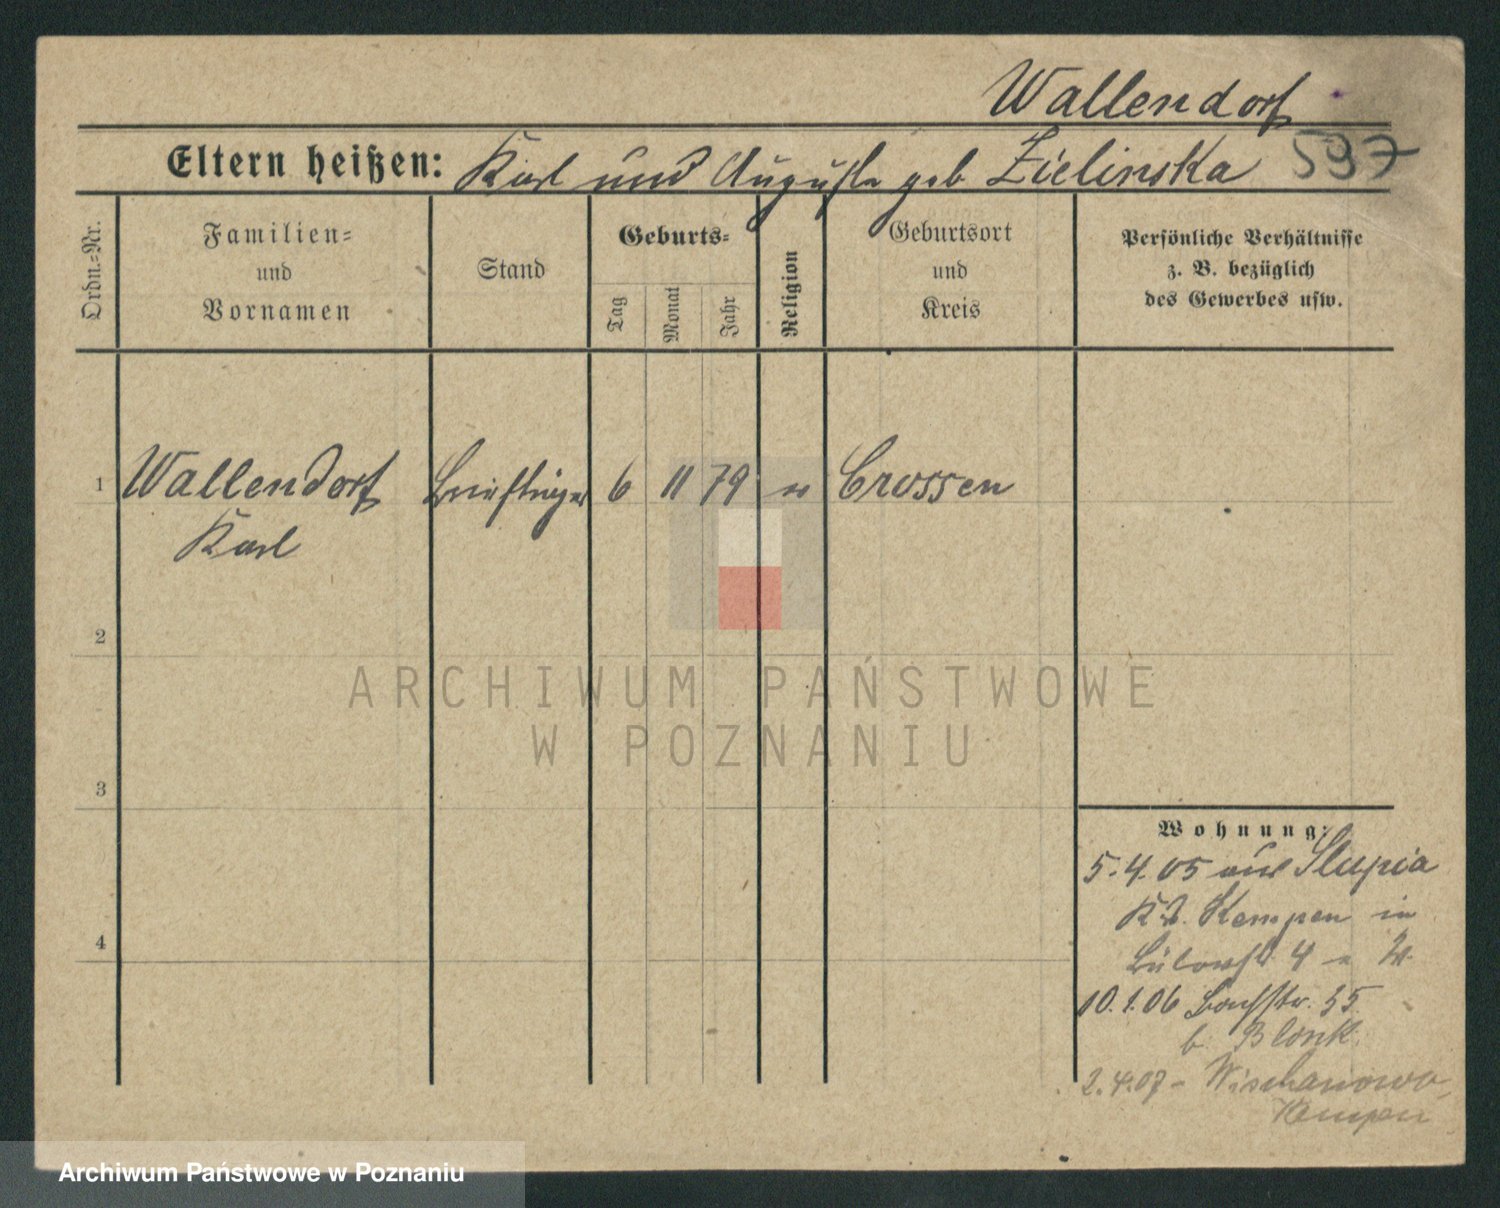 Wallendorf
Eltern heißen: Karl und Auguste geb Zielinska 597
Ordn.=Nr.
Familien=
und
Vornamen
Stand
Geburts=
Tag
Monat
Jahr
Religion
Geburtsort
und
Kreis
Persönliche Verhältnisse
z. B. bezüglich
des Gewerbes usw.
1 Wallendorf Briefträger 6 11 79 Crossen
Karl
2
3
4
Wohnung:
5.4.05 aus Slupia
Kr. Kempen in
Bülowstr 4 W.
10.1.06 Bachstr. 35
b. Blonk
2.4.07 - Wischanowo
Kempen
ARCHIWUM PAŃSTWOWE
W POZNANIU
Archiwum Państwowe w Poznaniu